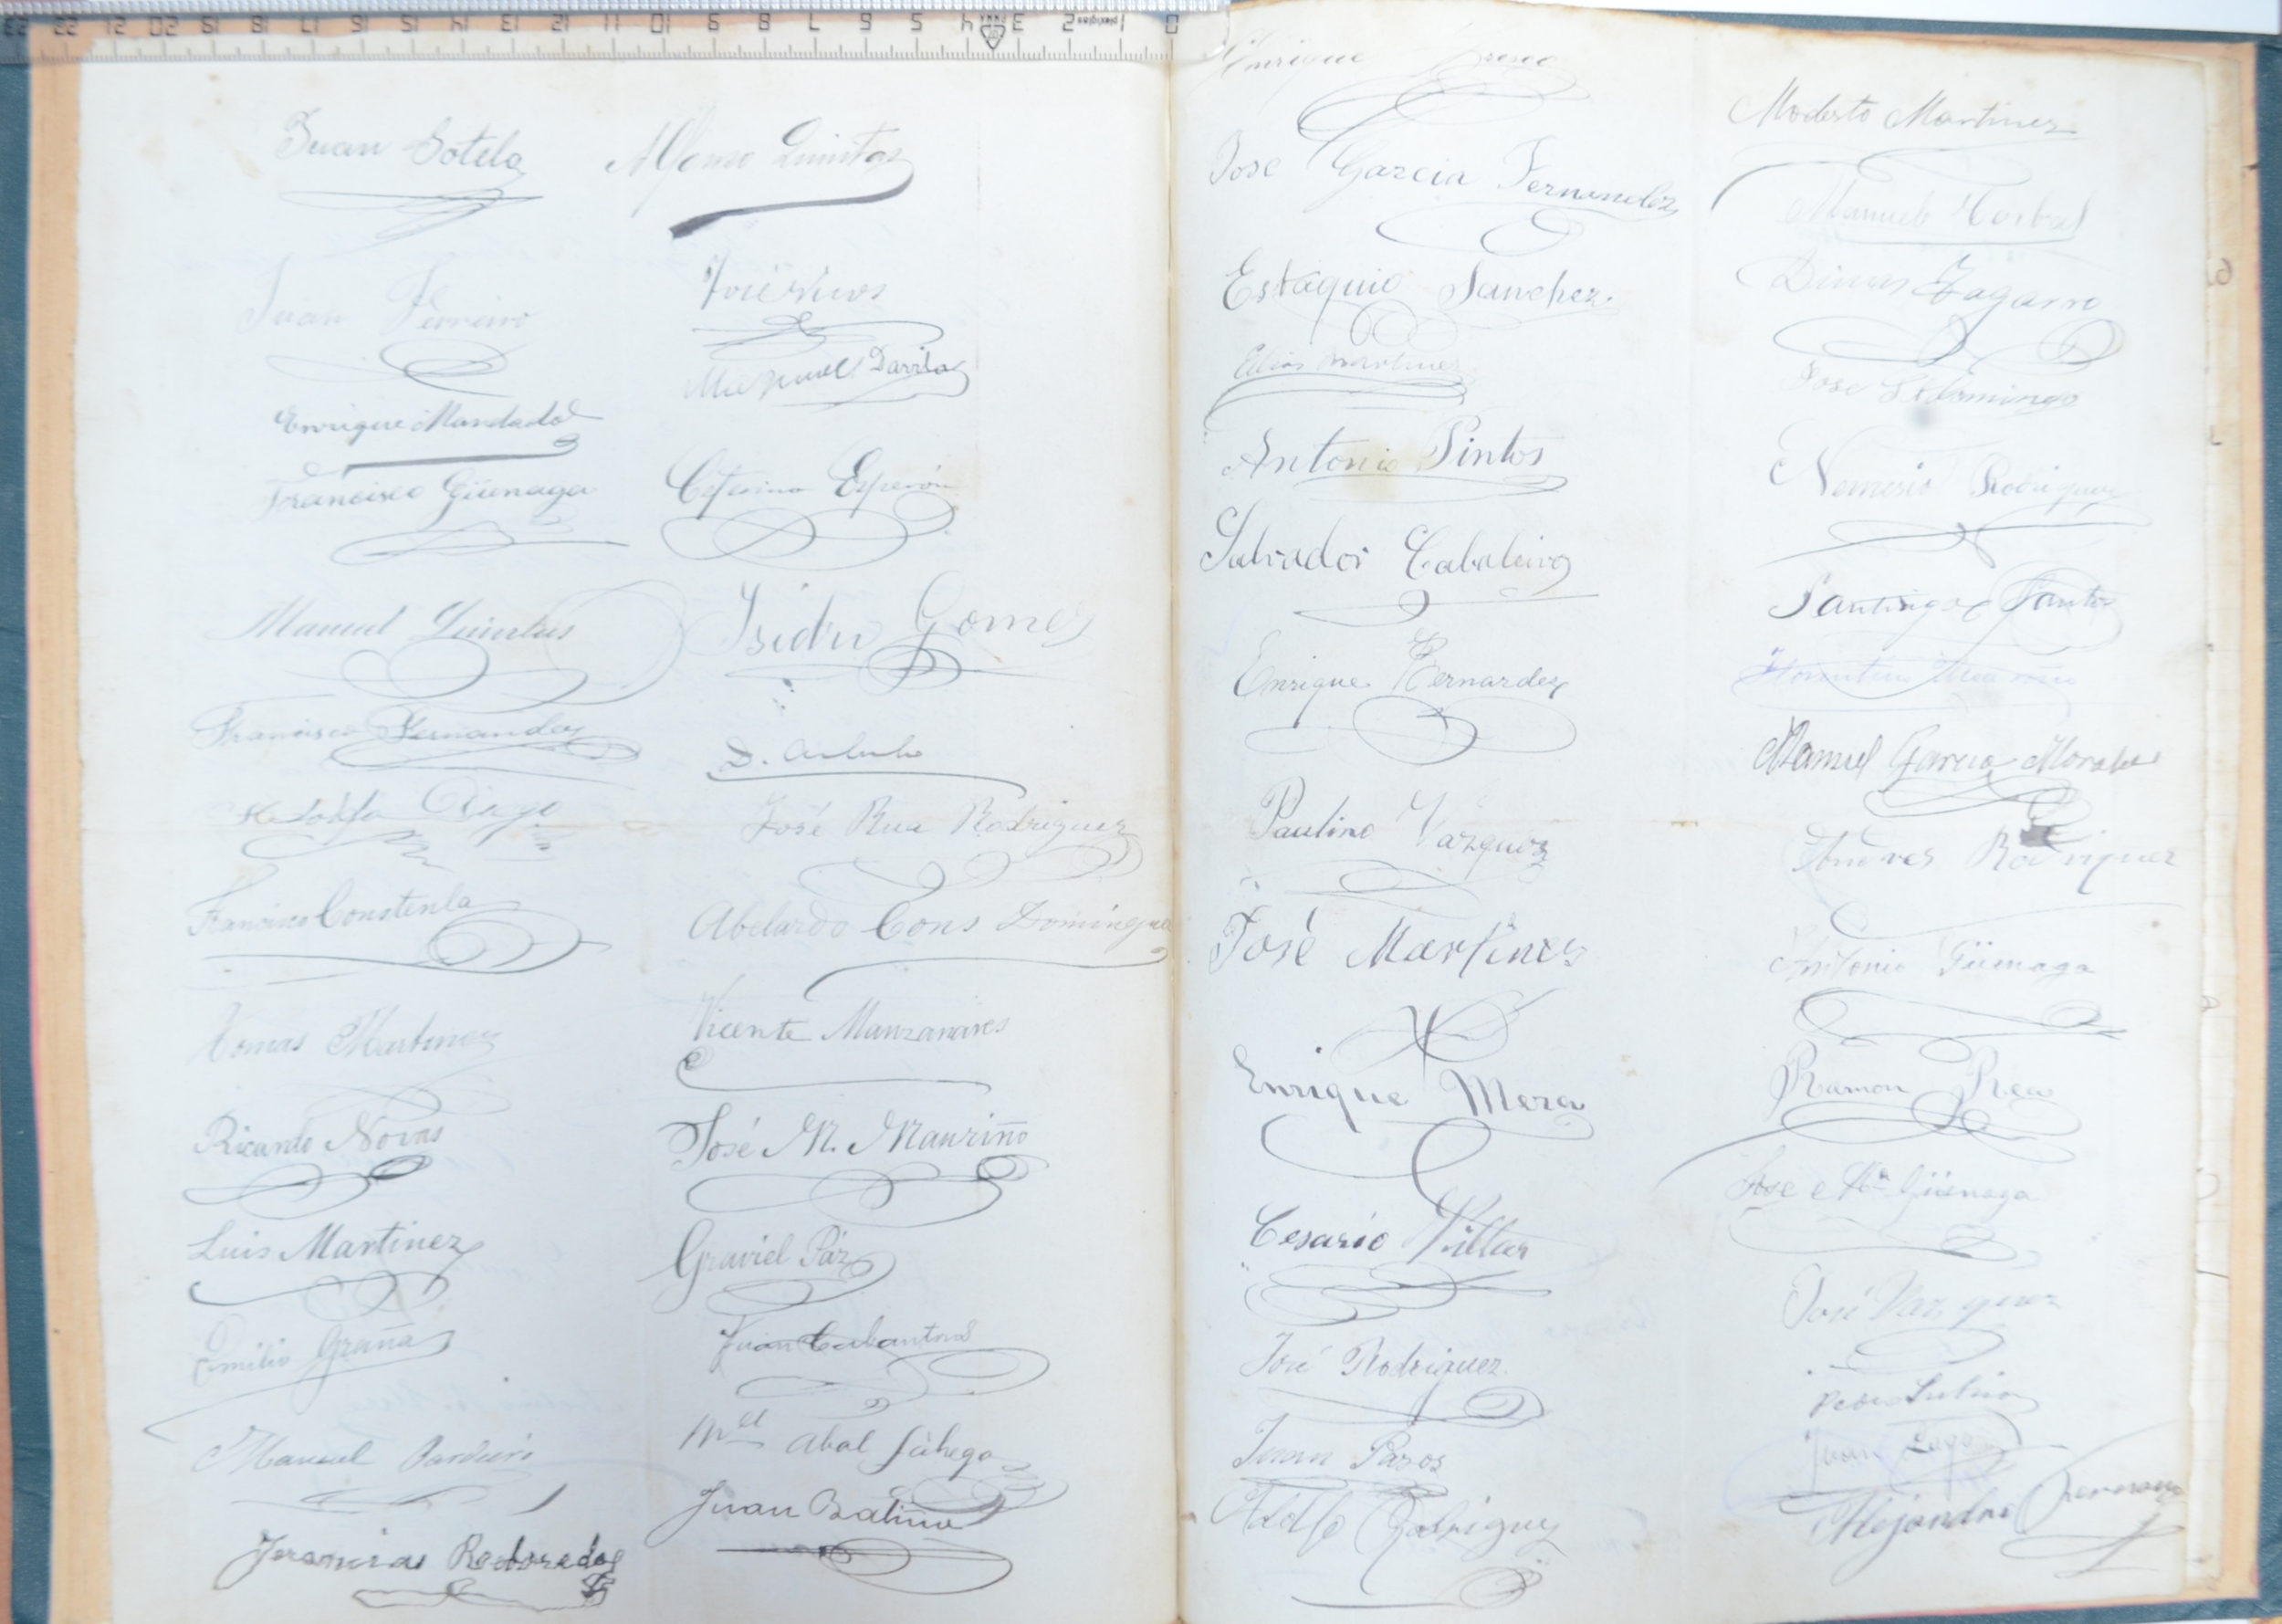 Juan Sotelo
Alfonso Quintas
Juan Ferreiro
José Rivos
Manuel Davila
Enrique Mandado
Francisco Güenaga
Ceferino Esperón
Manuel Quintas
Isidro Gomez
Francisco Fernandez
D.
José Rua Rodriguez
Francisco Constenla
Abelardo Cons Dominguez
Tomas Martinez
Vicente Manzanares
Ricardo Novas
José M. Mauriño
Luis Martinez
Graviel Páz
Emilio Graña
Juan Cabantros
Manuel
Mel Abal
Jeremias Redoredo
Juan Batino
Enrique
Jose Garcia Fernandez
Estaquio Sanchez.
Elias Martinez
Antonio Pintos
Salvador Cabaleiro
Enrique Bernardez
Paulino Vazquez
José Martinez
Enrique Mera
Cesario Villar
José Rodriguez.
Juan Pazos
Adolfo Rodriguez
Modesto Martinez
Manuel Corbal
Dimas Zagarro
Jose Sto Domingo
Nemesio Rodriguez
Santiago Santos
Florentino
Manuel Garcia Morales
Andres Rodriguez
Antonio Güenaga
Ramon Rea
Jose Ma Güenaga
José Vazquez
Pedro
Juan Lago
Alejandro